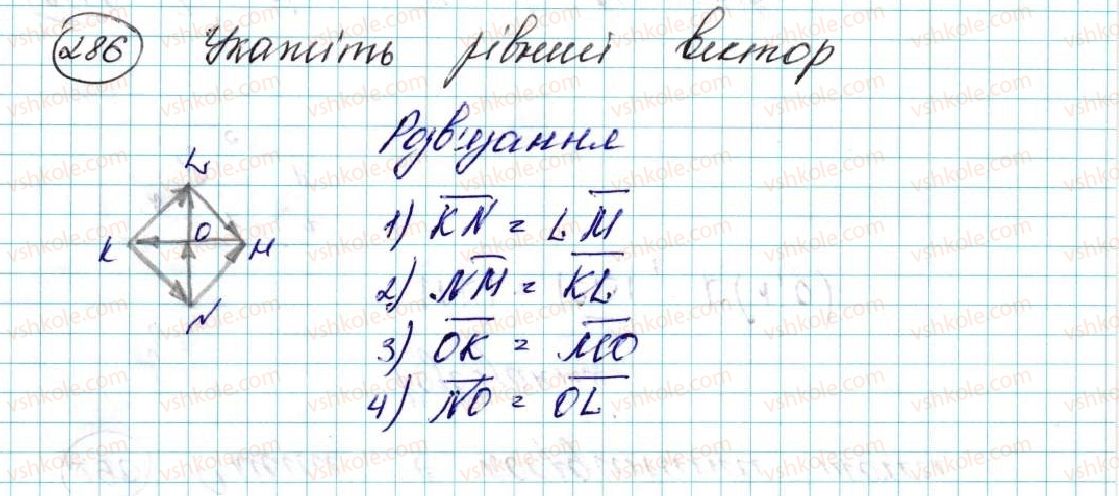 286 Укажіть рівний вектор
Розв'язання
L
O
K
M
N
1) KN = LM
2) NM = KL
3) OK = MO
4) NO = OL
vshkole.com